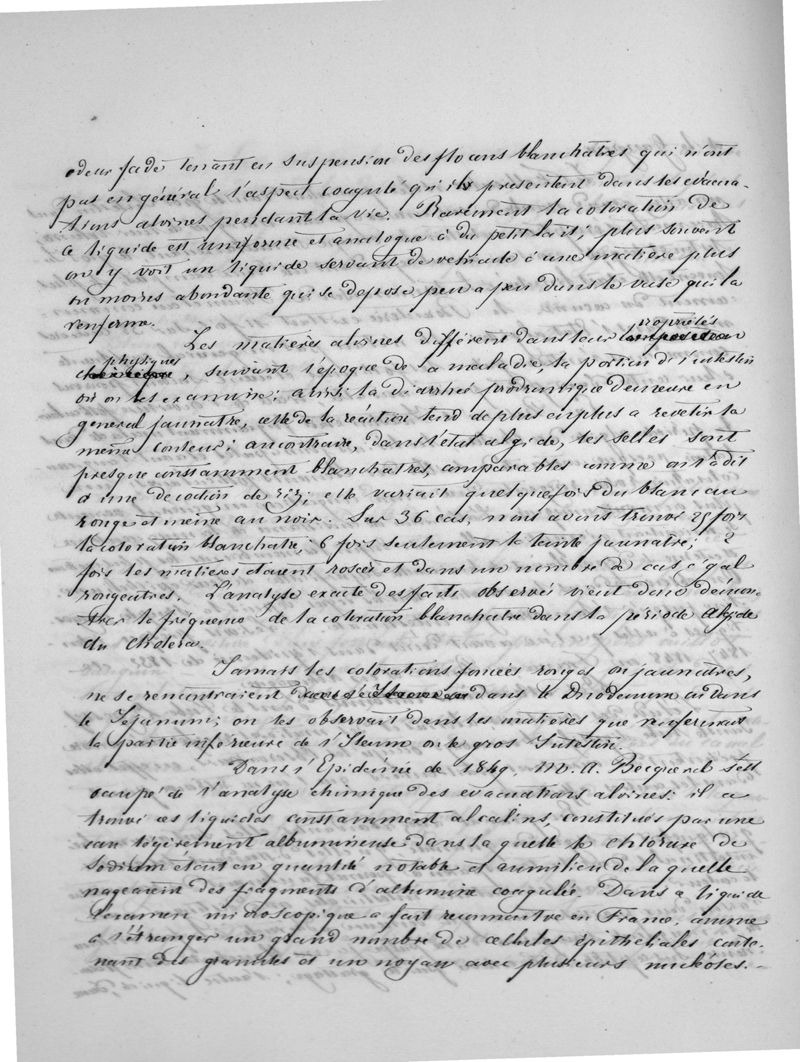 odeur fade tenant en suspension des flocons blanchatres qui n'ont
pas en général l'aspect coagulé qu'ils présentent dans les évacua-
tions alvines pendant la vie. Rarement la coloration de
ce liquide est uniforme et analogue à du petit lait; plus souvent
on y voit un liquide servant de véhicule à une matière plus
ou moins abondante qui se dépose peu a peu dans le vase qui la
renferme.
Les matières alvines diffèrent dans leur propriétés
physiques, suivant l'époque de la maladie, la portion d'intestin
où on les examine; ainsi la diarrhée prodromique demeure en
général jaunâtre, celle de la réaction tend de plus en plus a revetir la
même couleur; au contraire, dans l'état algide, les selles sont
presque constamment blanchatres, comparables comme on l'a dit
à une décoction de riz; elle variait quelquefois du blanc au
rouge et même au noir. Sur 36 cas, nous avons trouvé 25 fois
la coloration blanchatre; 6 fois seulement la teinte jaunatre; 2
fois les matières étaient rosées et dans un nombre de cas égal
rougeatres. L'analyse exacte des faits observés vient donc démon-
trer la fréquence de la coloration blanchatre dans la période Algide
du choléra.
Jamais les colorations foncées rouges ou jaunâtres,
ne se rencontraient dans le Duodenum ou dans
le Jejunum; on les observait dans les matières que renfermait
la partie inférieure de l'Ileum ou le gros Intestin.
Dans l'Epidémie de 1849, M. A. Becquerel s'est
occupé de l'analyse chimique des évacuations alvines: il a
trouvé ces liquides constamment alcalins, constitués par une
eau légèrement albumineuse dans laquelle le chlorure de
sodium étoit en quantité notable et au milieu de laquelle
nageaient des fragments d'albumine coagulée. Dans ce liquide
l'examen microscopique a fait reconnaitre en France, comme
à l'étranger un grand nombre de cellules épithéliales conte-
nant des granules et un noyau avec plusieurs nucléoles.